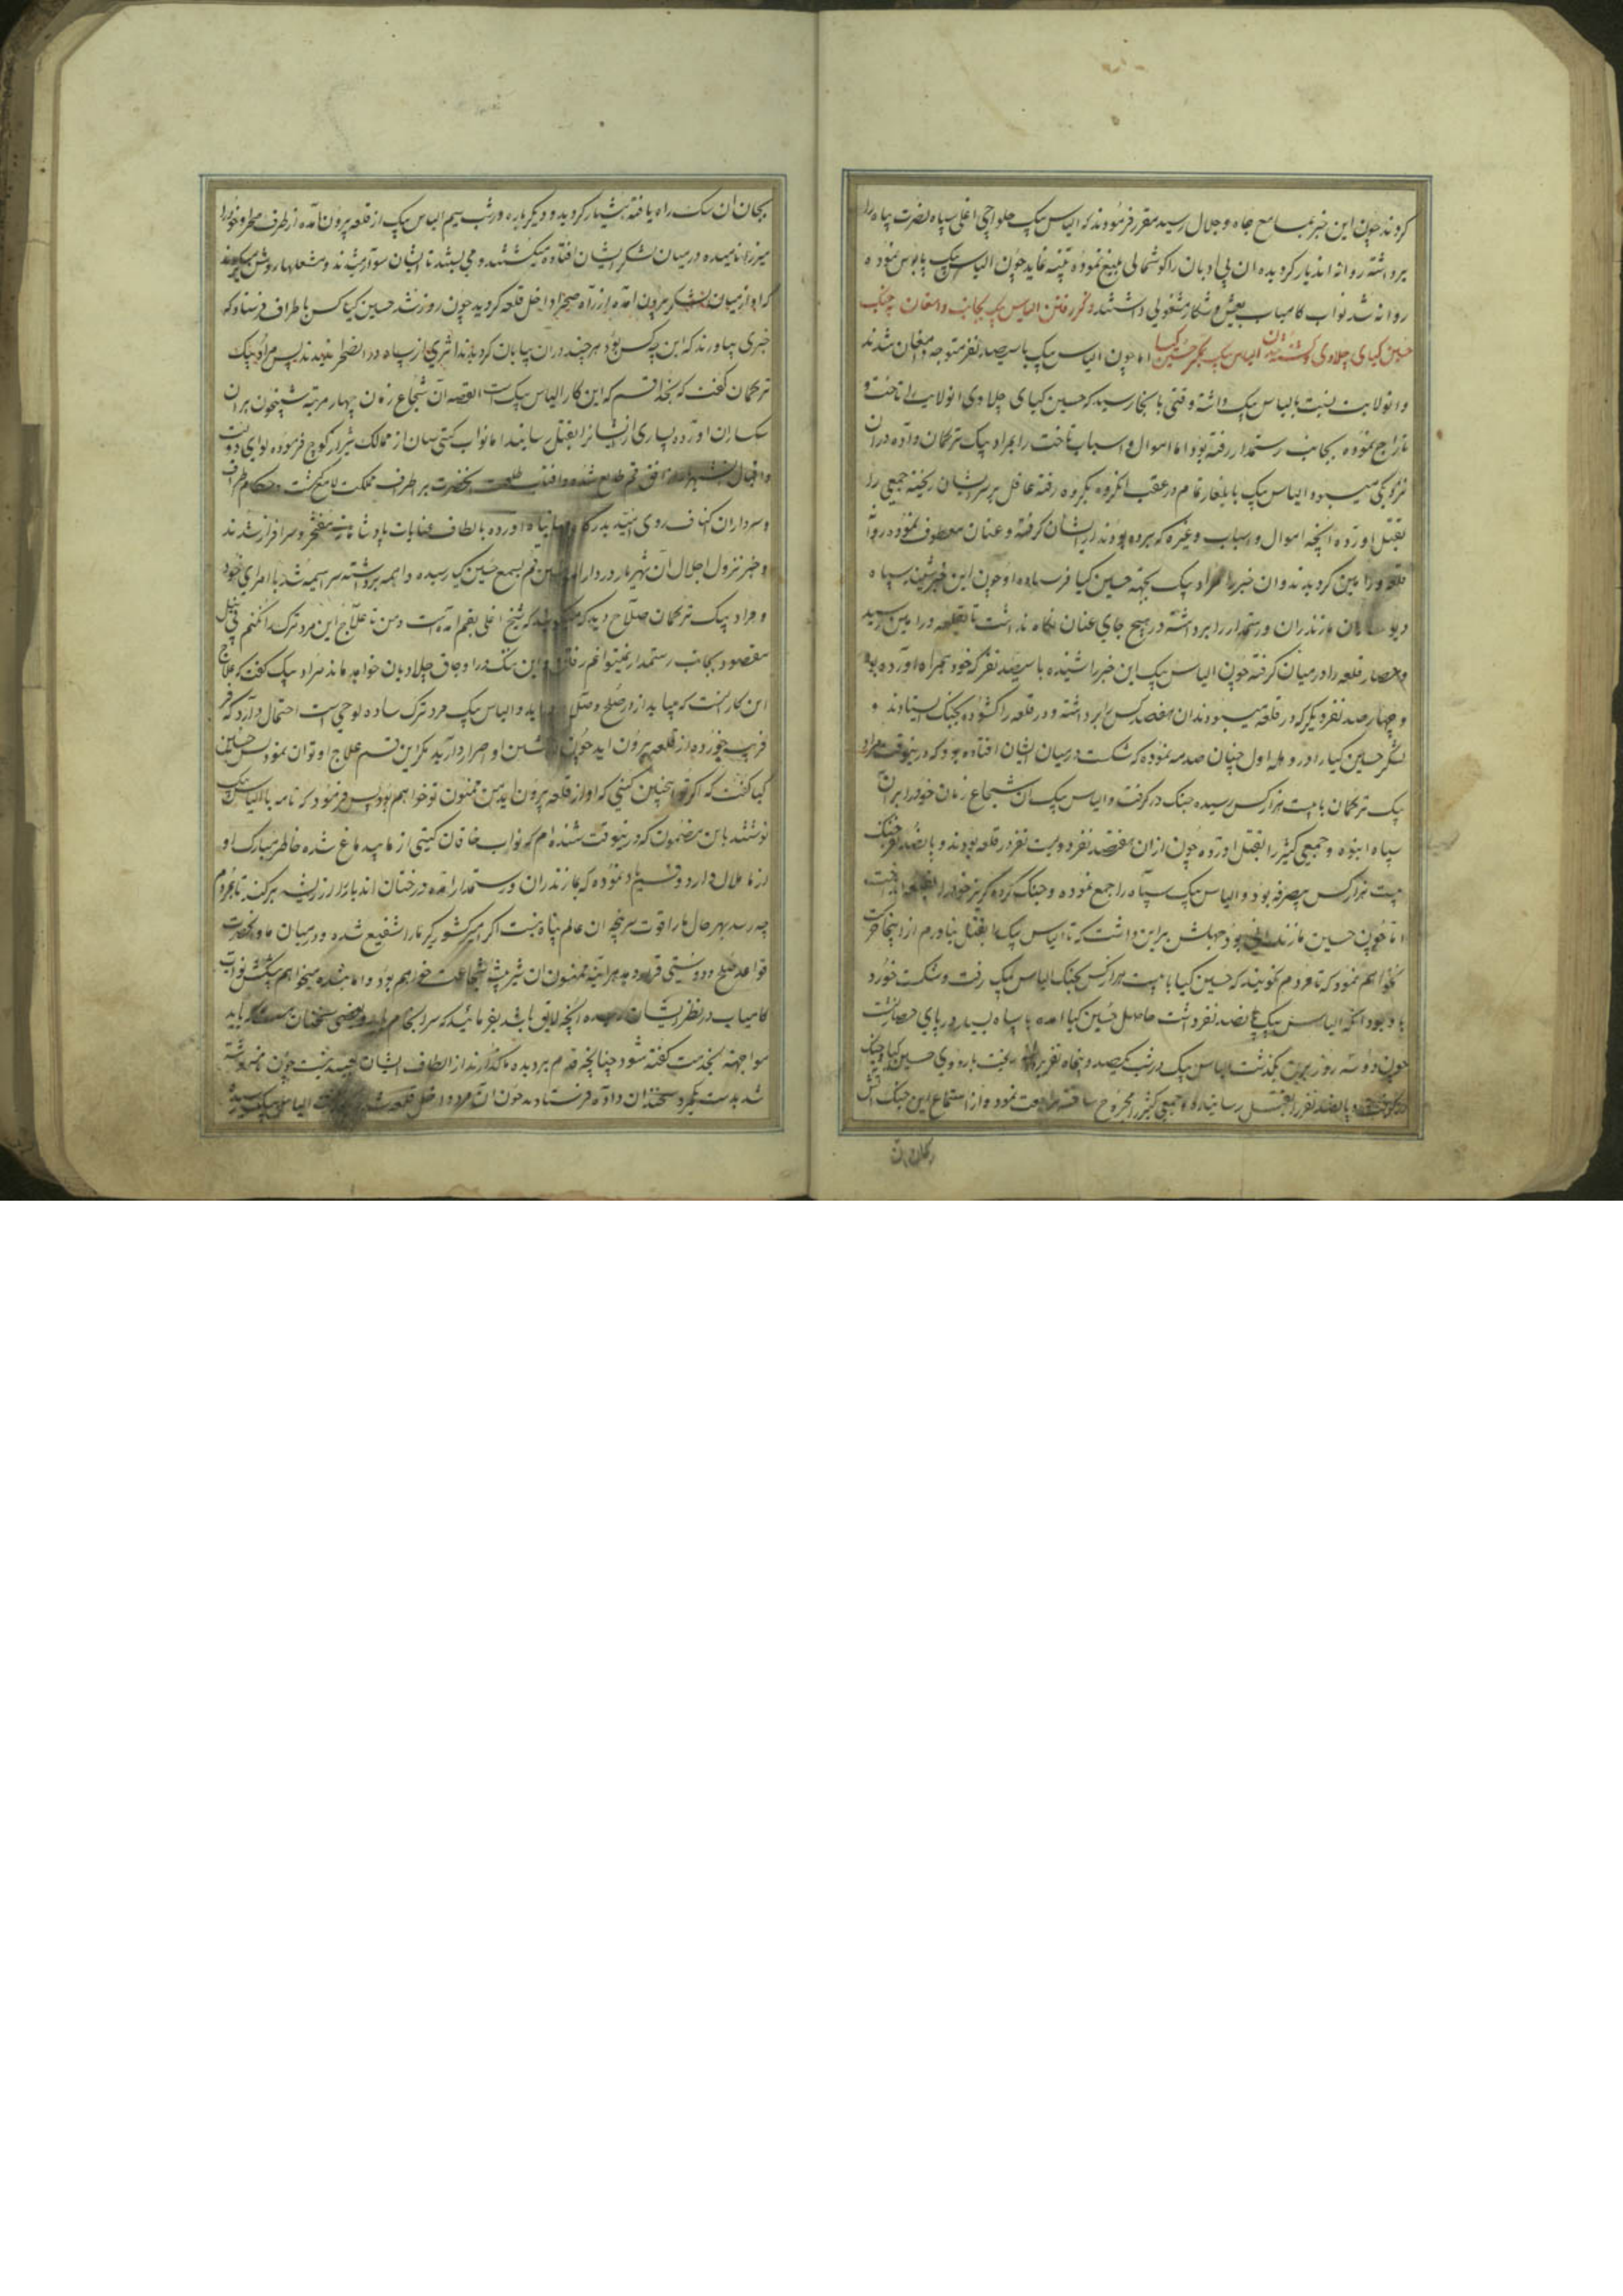 کردند چون این خبر بمسامع جاه و جلال رسید مقرر فرمودند که الیاس بیک حلواچی اغلی سپاه نصرت پناه را
برداشته روانه اندیار کردیده ان بی ادبان را کوشمالی بلیغ نموده تنبیه نماید چون الیاس بیک پابوس نموده
روانه شد نواب کامیاب بعیش و شکار مشغولی داشتند ذکر رفتن الیاس بیک بجانب دامغان بجنک
حسین کیای چلاوی و کشته شدن الیاس بیک بمکر حسین کیا اما چون الیاس بیک با سیصد نفر متوجه دامغان شدند
و انولایت نسبت بالیاس بیک داشته وقتی بانجا رسید که حسین کیای چلاوی انولایت را تاخت و
تاراج نموده بجانب رستمدار رفته بود اما اموال و اسباب تاخت را بمراد بیک ترکمان داده در ان
نزدیکی میبود الیاس بیک بایلغار تمام در عقب انکروه بکروه رفته غافل بر سر ایشان ریخته جمعی را
بقتل اورده انچه اموال و اسباب و غیره که برده بودند از ایشان کرفته و عنان معطوف نموده روانه
قلعه ورامین کردیدند و ان خبر را مراد بیک بجهة حسین کیا فرستاده او چون این خبر شنید سپاه
مازندران و رستمدار را برداشته در هیچ جای عنان نکاه نداشت تا بقلعه ورامین رسید
و حصار قلعه را در میان کرفته چون الیاس بیک این خبر را شنیده با سیصد نفر که خود همراه اورده بود
و چهار صد نفر دیکر که در قلعه میبودند ان هفصد کس را برداشته و در قلعه را کشوده بجنک ایستادند و
لشکر حسین کیا را در وهله اول چنان صدمه نموده که شکست در میان ایشان افتاده بود که در ینوقت مراد
بیک ترکمان با بیست هزار کس رسیده جنک در کرفت و الیاس بیک ان شجاع زمان خود را بران
سپاه انبوه و جمعی کثیر را بقتل اورده چون از ان هفتصد نفر دویست نفر در قلعه بودند و پانصد نفر جنک
بیست هزار کس بیصرفه بود و الیاس بیک سپاه را جمع نموده و جنک کرده کریز خود را بقلعه انداخت
اما چون حسین مازندرانی بود جهلش براین داشت که تا الیاس بیک را بقتل نیاورم از اینجا حرکت
نخواهم نمود که تا مردم نکویند که حسین کیا با بیست هزار کس بجنک الیاس بیک رفت و شکست خورد
با وجود انکه الیاس بیک پانصد نفر داشت حاصل حسین کیا امده با سپاه بسیار در پای حصار نشست
چون دو سه روز برین بکذشت الیاس بیک در شب یکصد و پنجاه نفر برداشته ریخت باردوی حسین کیا و جنک
پانصد نفر را بقتل رسانیده و جمعی کثیر را مجروح ساخته مراجعت نموده و از استماع این جنک اتش
بجان ان سک راه یافته هشیار کردید و دیکر باره در شب سیم الیاس بیک از قلعه بیرون آمده از طرف صحرا و خود را
میزدند در میان لشکر ایشان افتاده میکشتند و می بستند تا ایشان سوار میشدند و مشعلها روشن میکردند
که او از میان لشکر بیرون آمده از راه صحرا داخل قلعه کردید چون روز شد حسین کیا کس باطراف فرستاد که
خبری بیاورند که این چه کس بود هر چند در ان بیابان کردیدند اثری از سپاه در انصحرا ندیدند پس مراد بیک
ترکمان کفت که بخدا قسم که این کار الیاس بیک است القصه آن شجاع زمان چهار مرتبه شبیخون بر ان
سکساران اورده بسیاری از ایشانرا بقتل رسانید اما نواب کیتی ستان از ممالک شیراز کوچ فرموده لوای دولت
و اقبال انشهریار از افق قم طالع شده و افتاب طلعت انحضرت بر اطراف مملکت لامع کشت و حکام اطراف
و سرداران اکناف روی امید بدرکاه جهانپناه اورده بالطاف عنایات پادشاهانه مفتخر و سرافراز شدند
و خبر نزول اجلال آن شهریار در دارالمؤمنین قم بسمع حسین کیا رسیده واهمه برداشته سراسیمه شد با امرای خود
و مراد بیک ترکمان صلاح دید که میکویند که شیخ اغلی بقم امده است و من تا علاج این مرد ترک را نکنم بی نیل
مقصود بجانب رستمدار نمیتوانم رفتن و این ننک در اوجاق چلاویان خواهد ماند مراد بیک کفت که علاج
این کار انست که میباید از در صلح و صلاح و الیاس بیک مرد ترک ساده لوحی است احتمال دارد که
فریب خورده از قلعه بیرون اید چون مکر این قسم علاج او توان نمود پس حسین
کیا کفت که اکر تو اینچنین کنی که او از قلعه بیرون اید من ممنون تو خواهم بود پس فرمود که نامه بالیاس بیک
نوشتند باین مضمون که درینوقت شنیده ام که نواب خاقان کیتی از ما بیدماغ شده خاطر مبارک او
از ما ملال دارد و قسم یاد نموده که بمازندران و رستمدار امده درختان اندیار را از ریشه برکند تا بمردم
چه رسد بهر حال ما را قوت سرپنجه ان عالم پناه نیست اکر امیر کشور کیر ما را شفیع شده و در میان ما و انحضرت
قواعد صلح و دوستی قرار دهد هر اینه ممنون ان شیر بیشه شجاعت خواهم بود و اما بنده میخواهم پیشکش نواب
کامیاب در نظر ایشان رسیده انچه لایق باشد بفرمائید که سرانجام نماید و بعضی سخنان هست که باید
مواجهة بخدمت کفته شود چنانچه قدم بردیده ما کذارند از الطاف ایشان بعید نیست چون نامه نوشته
شد بدست یکمرد سخندان داده فرستادند چون آن مرد داخل قلعه شد بخدمت الیاس بیک رسیده